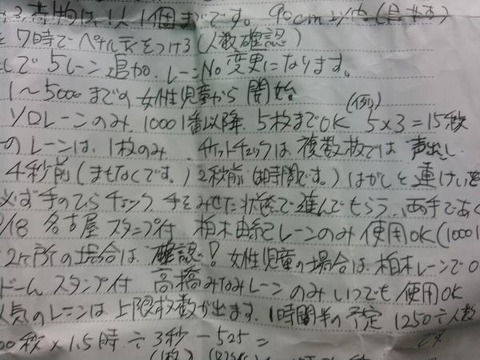 荷物は1人1個までです。90cm以内(目安)
7時でペデル表をつける(人数確認)
して5レーン追加。レーンNo変更になります。
1〜5000までの女性児童から開始
(例)
ソロレーンのみ、10001番以降、5枚までOK 5×3=15秒
のレーンは、1枚のみ。チケットチェックは複数枚では声出し
4秒前(まもなくです。)2秒前(お時間です。)はがしと連けい
必ず手のひらチェック 手をみせた状態で進んでもらう。両手であく
/18 名古屋スタンプ付 柏木由紀レーンのみ使用OK(1000
2ヶ所の場合は確認! 女性児童の場合は、柏木レーンでO
ドームスタンプ付 高橋みなみレーンのみいつでも使用OK
人気のレーンは上限枚数が出ます。1時間半の予定 1250÷人数
00秒×1.5時÷3秒-525=
(1枚)